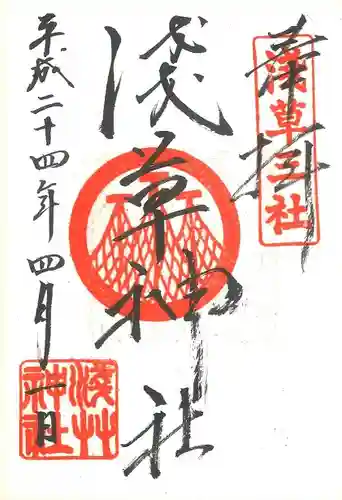 奉拝
淺草三社
淺草神社
平成二十四年四月一日
淺草神社